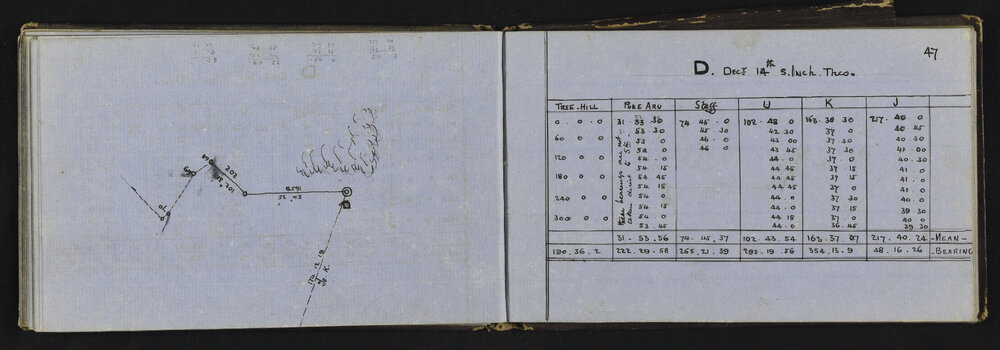 47
D. Decr 14th 5.Inch. Theo.
TREE-HILL PUKE ARU Staff U K J
0 . 0 . 0 31 . 53 . 30 74 . 45 . 0 102 . 43 0 163 . 36 30 217 . 40 0
53 . 30 45 . 30 42 . 30 37 0 40 45
60 0 0 53 . 0 46 . 0 43 00 37 30 40 30
53 0 46 0 43 45 37 30 41 . 00
120 0 0 54 . 0 44 . 0 37 . 0 40 . 30
54 15 44 45 37 15 41 . 0
180 0 0 54 45 44 45 37 15 41 . 0
54 15 44 45 37 . 0 41 . 0
240 0 0 54 0 44 . 0 37 30 40 0
54 15 44 . 0 37 15 39 30
300 0 0 54 0 44 15 37 . 0 40 0
53 . 45 44 . 0 36 . 45 39 30
31 . 53 . 56 74 . 45 . 37 102 . 43 . 54 163 . 37 . 07 217 . 40 . 24 -MEAN-
190 . 36 . 2 222 . 29 . 58 265 . 21 . 39 293 . 19 . 56 354 . 13 . 9 48 . 16 . 26 -BEARING
these bearings are not
202
102
1659
D